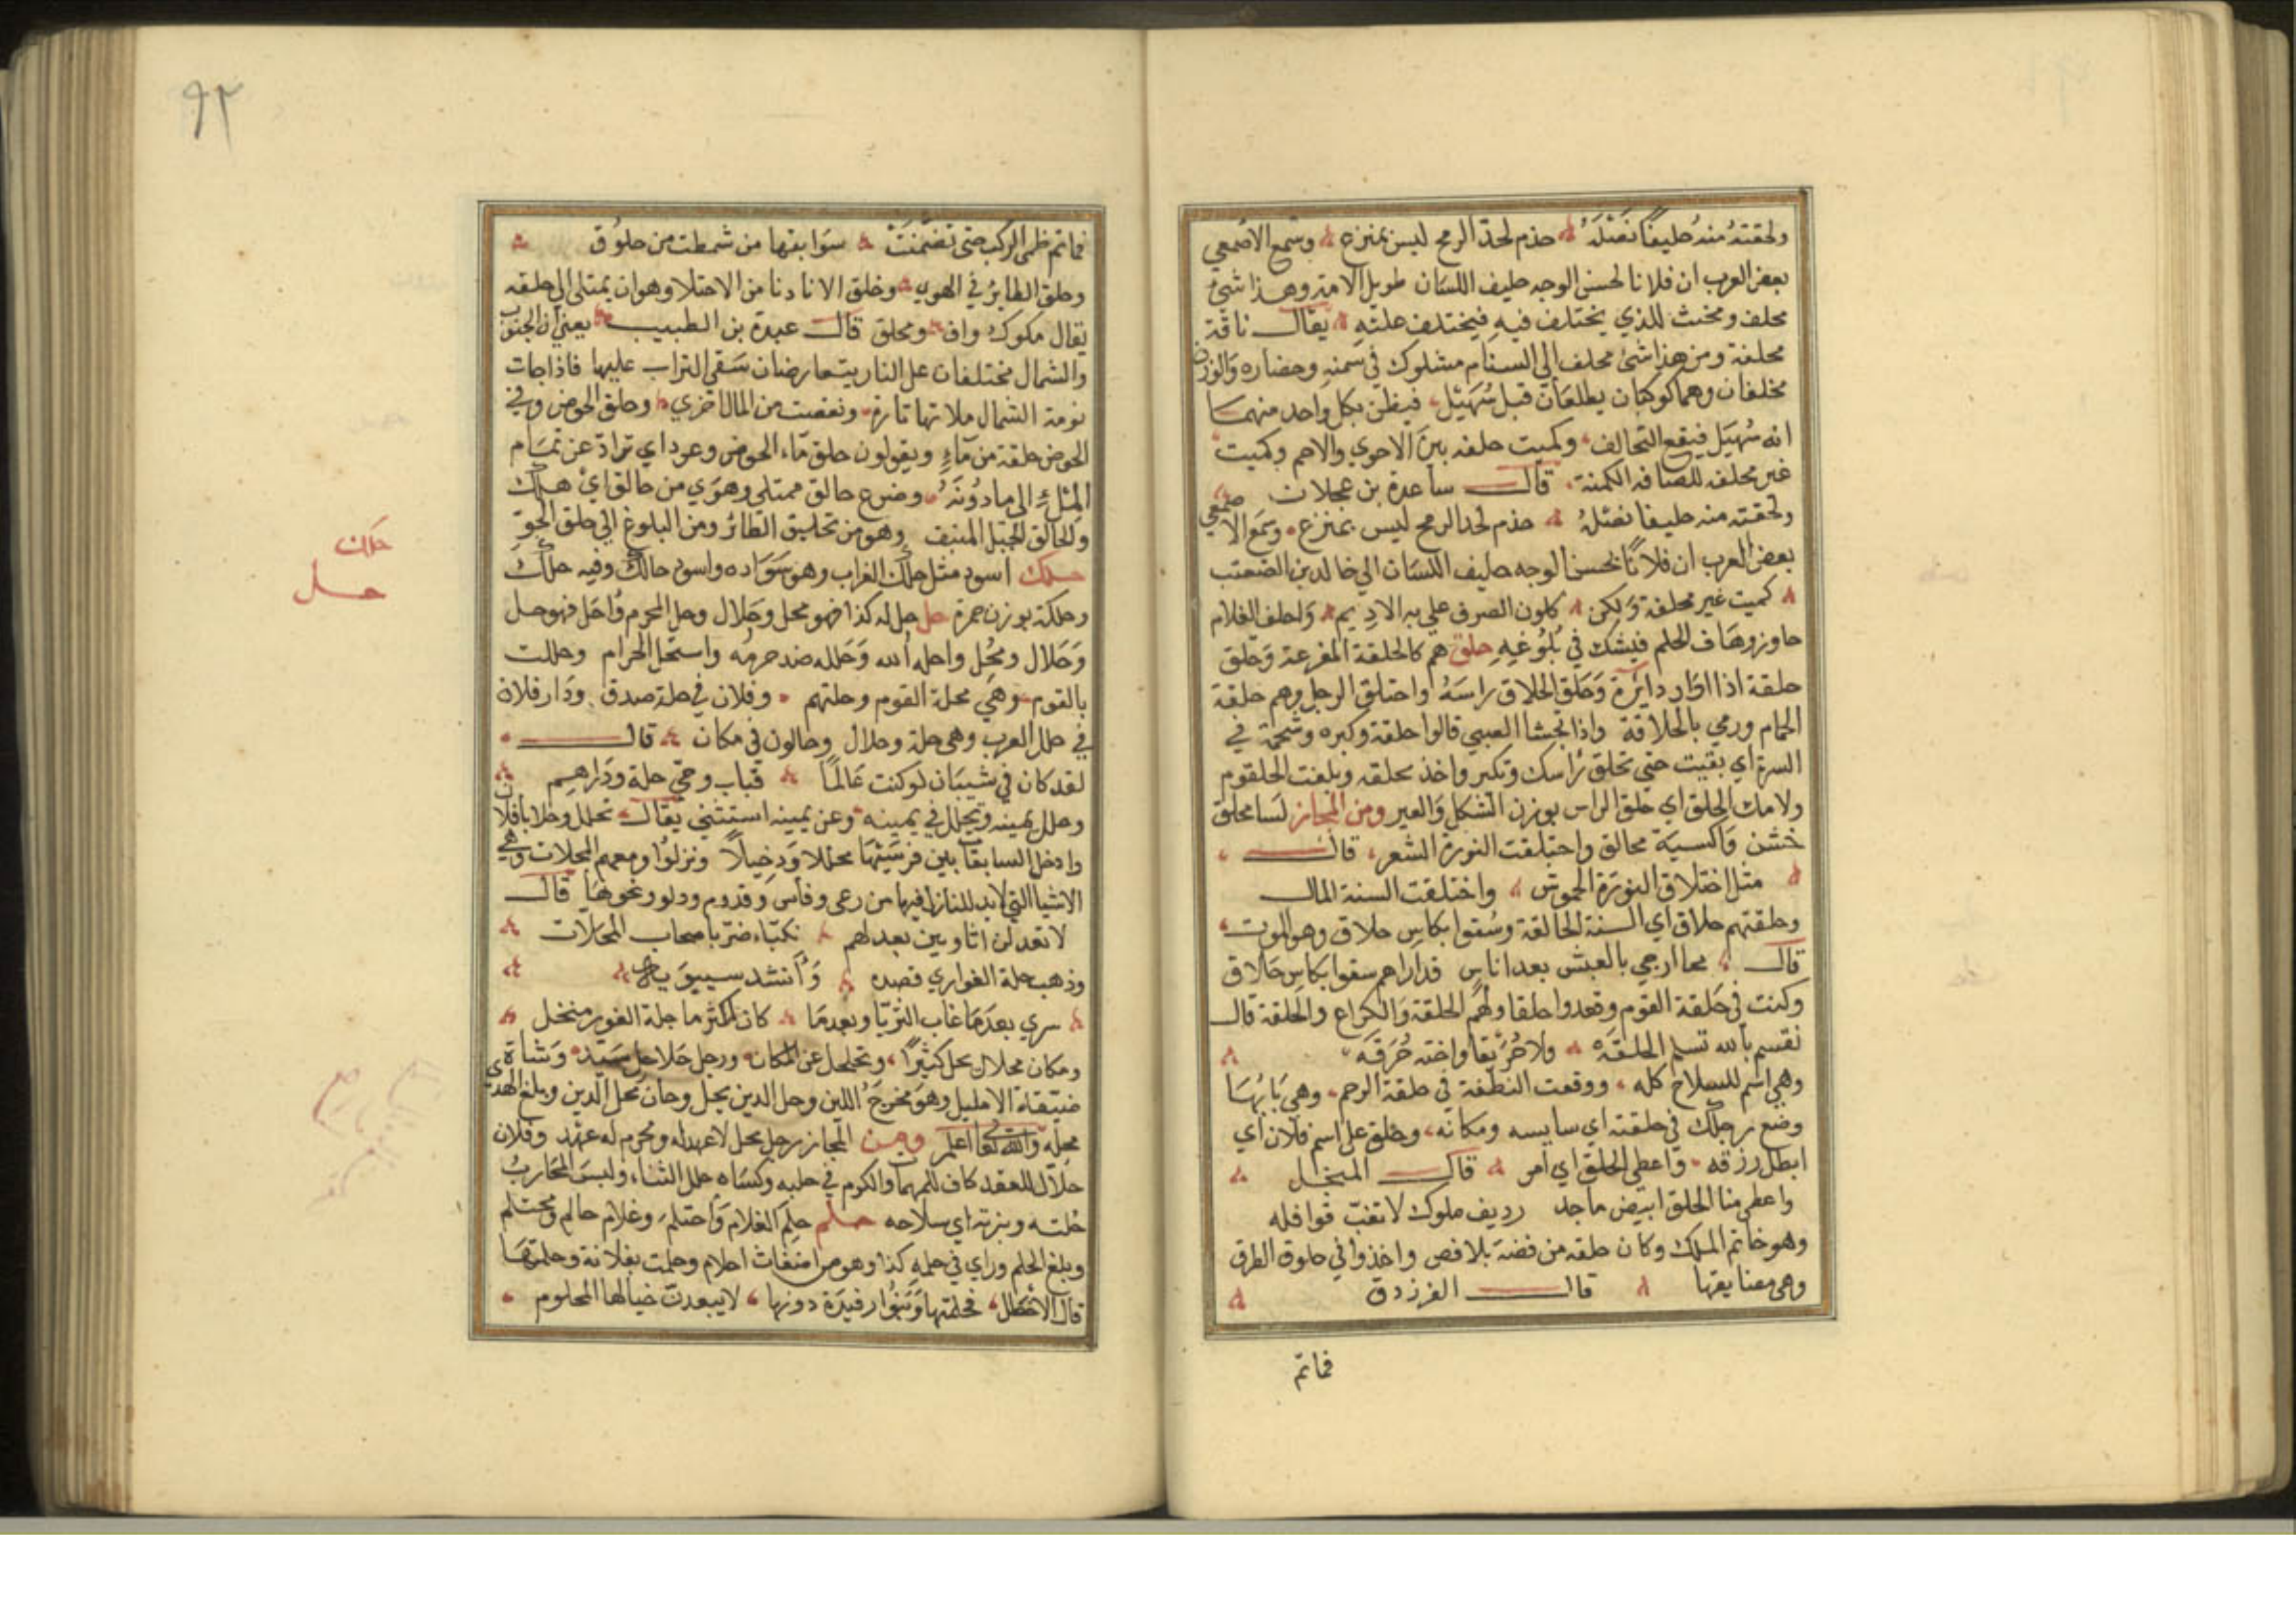 ولحقته منه حليفا نصله حذم لحد الرمح ليس بمنزع وسمع الاصمعي
بعض العرب ان فلانا لحسن الوجه حليف اللسان طويل الامة وهذا شئ
محلف ومحنث للذي يختلف فيه فيختلف عليه يقال ناقة
محلفة ومن هذا شئ محلف الي السنام مشلوك في سمنه وحضاره والوزن
مخلفان وهما كوكبان يطلعان قبل سهيل فيظن بكل واحد منهما
انه سهيل فيقع التحالف وكميت حلفه بين الاحوي والاحم وكميت
غير محلفه للصافه الكمتة قال ساعدة بن عجلان
ولحقته منه حليفا نصله حذم لحد الرمح ليس بمنزع وسمع الاصمعي
بعض العرب ان فلانا لحسن الوجه حليف اللسان الي خالد بن الصعب
كميت غير محلفة ولكن كلون الصرف علي به الاديم واحلف الغلام
جاوز رهاف الحلم فيشك في بلوغه حلق هم كالحلقة المفرعة وحلق
حلقة اذا ادار دايرة وحلق الحلاق راسه واحتلق الرجل وهم حلقة
الحمام ورمي بالحلاقة واذا تجشا الصبي قالوا حلقة وكبره وشحمة في
السرة اي بقيت حتي تحلق راسك وتكبر واخذ بحلقه وبلغت الحلقوم
ولامك الحلق اي حلق الراس بوزن الشكل والعير ومن المجاز لسا محلق
خشن واكسية محالق واحتلقت النورة الشعر قال
مثل اختلاق النورة الحموش واختلقت السنة المال
وحلقتهم حلاق اي السنة الحالقة وسقوا بكاس حلاق وهو الموت
قال محا ارجي بالعيش بعد اناس قد اراهم سقوا بكاس حلاق
وكنت في حلقة القوم وقعدوا حلقا ولهم الحلقة والكراع والحلقة قال
نقسم بالله نسلم الحلقه ولا حريقا واخته حرقه
وهي اسم للسلاح كله ووقعت النطفة في حلقة الرحم وهي بابها
وضع رجلك في حلقته اي سايسه ومكانه وحلق علي اسم فلان اي
ابطل رزقه واعطي الحلق اي امر قال المبخل
واعطي منا الحلق ابيض ماجد رديف ملوك لا تغب قوافله
وهو خاتم الملك وكان حلقه من فضة بلا فص واخذوا في حلوق الطرق
وهي مضايقها قال الفرزدق
فماتم
٩٢
فماتم ظمي الركب حتي تضمنت سوابقها من شمطت من حلوق
وحلق الطاير في الهوي وحلق الانا دنا من الامتلا وهو ان يمتلي الي حلقه
يقال مكوك واف ومحلق قال عبدة بن الطبيب يعني ان الجنوب
والشمال مختلفان علي النار يتعارضان سقي التراب عليها فاذا جات
نومة الشمال ملاتها تارة ونقصت من المال اخري وحلق الحوض وفي
الحوض حلقة من ماء ويقولون حلق ماء الحوض وعرد اي تراد عن تمام
المثلء الي ما دونه وضرع حالق ممتلي وهوي من حالق اي هلك
والحالق الجبل المنيف وهو من تحليق الطائر ومن البلوغ الي حلق الجو
حلك اسود مثل حلك الغراب وهو سواده واسود حالك وفيه حلك
وحلكة بوزن حمرة حل حل له كذا فهو محل وحلال وحل المحرم واحل فهو حل
وحلال ومحل واحله الله وحلله ضد حرمه واستحل الحرام وحللت
بالقوم وهي محلة القوم وحلتهم وفلان في حلة صدق ودار فلان
في حلل العرب وهي حلة وحلال وحالون في مكان قال
لقد كان في شيبان لو كنت عالما قباب وحي حلة ودراهم
وحلل يمينه وتحلل في يمينه وعن يمينه استثني يقال تحلل وحلا با فلان
وادخل السابقا بين فرسيهما محللا ودخيلا ونزلوا ومعهم المحلات وهي
الاشيا التي لا بد للنازل فيها من رعي وفاس وقدوم ودلو ونحوها قال
لا تعدلن اتاويين بعد لهم نكباء ضر باصحاب المحلات
وذهب حلة الغواري قصده وانشد سيبويه
سري بعد ما غاب الثريا وبعدما كان اكثر ما حلة الغور منخل
ومكان محلال يحل كثيرا وتحلحل عن المكان ورجل حلاحل سيد وشاة
ضيقة الاحليل وهو مخرج اللبن وحل الدين يحل وحان محل الدين وبلغ الهدي
محله والله تعا اعلم ومن المجاز رجل محل لا عهد له ومحرم له عهد وفلان
حلال للعقد كاف للمهمات والكرم في حلبه وكساه حلل الثناء ولبس المحارب
حلته وبزته اي سلاحه حلم حلم الغلام واحتلم وغلام حالم ومحتلم
وبلغ الحلم وراي في حلمه كذا وهو من اضغاث احلام وحلمت بفلانة وحلمتها
قال الاخطل فحلمتها وبنوا رفيدة دونها لا يبعدن خيالها المحلوم
حلك
حل